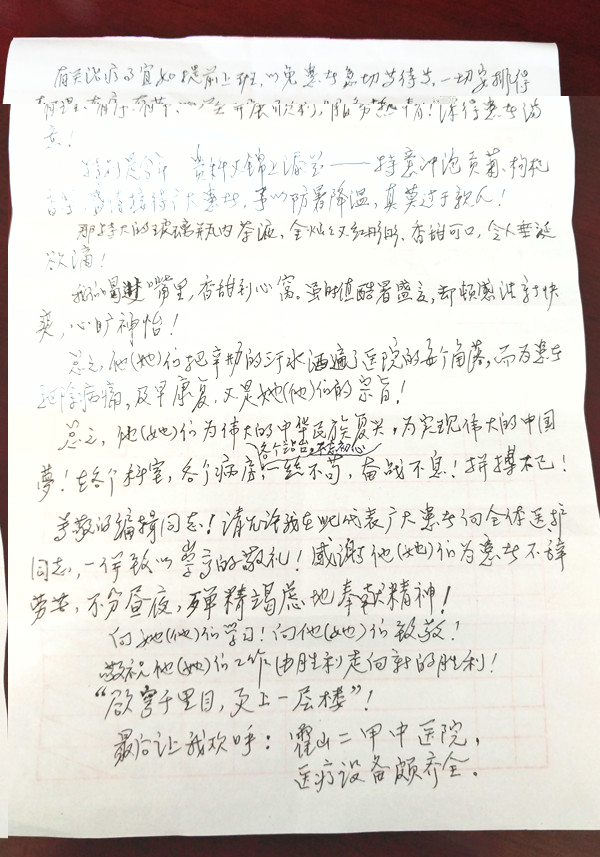 有关治疗事宜如提前上班,以免患者急切等待等,一切安排得
有理、有序、有节、
意!
特别是今年 又锦上添花——特意冲泡贡菊、枸杞
接待广大患者,予以防暑降温,真莫过于歌人!
那特大的玻璃瓶内茶液,金灿又红彤彤、香甜可口,令人垂涎
欲滴!
我们喝进嘴里,香甜到心窝。虽时值酷暑盛夏,却顿感清新快
爽,心旷神怡!
总之,他(她)们把辛勤的汗水洒遍了医院的每个角落,而为患者
祛除病痛,及早康复,又是她(他)们的宗旨!
总之,他(她)们为伟大的中华民族复兴,为实现伟大的中国
各个站台,不忘初心
夢!在各个科室,各个病房,一丝不苟,奋战不息!拼搏不已!
尊敬的编辑同志!请允许我在此代表广大患者向全体医护
同志,一併致以崇高的敬礼!感谢他(她)们为患者不辞
劳苦,不分昼夜,殚精竭虑地奉献精神!
向她(他)们学习!向他(她)们致敬!
敬祝他(她)们工作由胜利走向新的胜利!
“欲穷千里目,更上一层楼”!
最后让我欢呼:霍山二甲中医院,
医疗设备颇齐全.